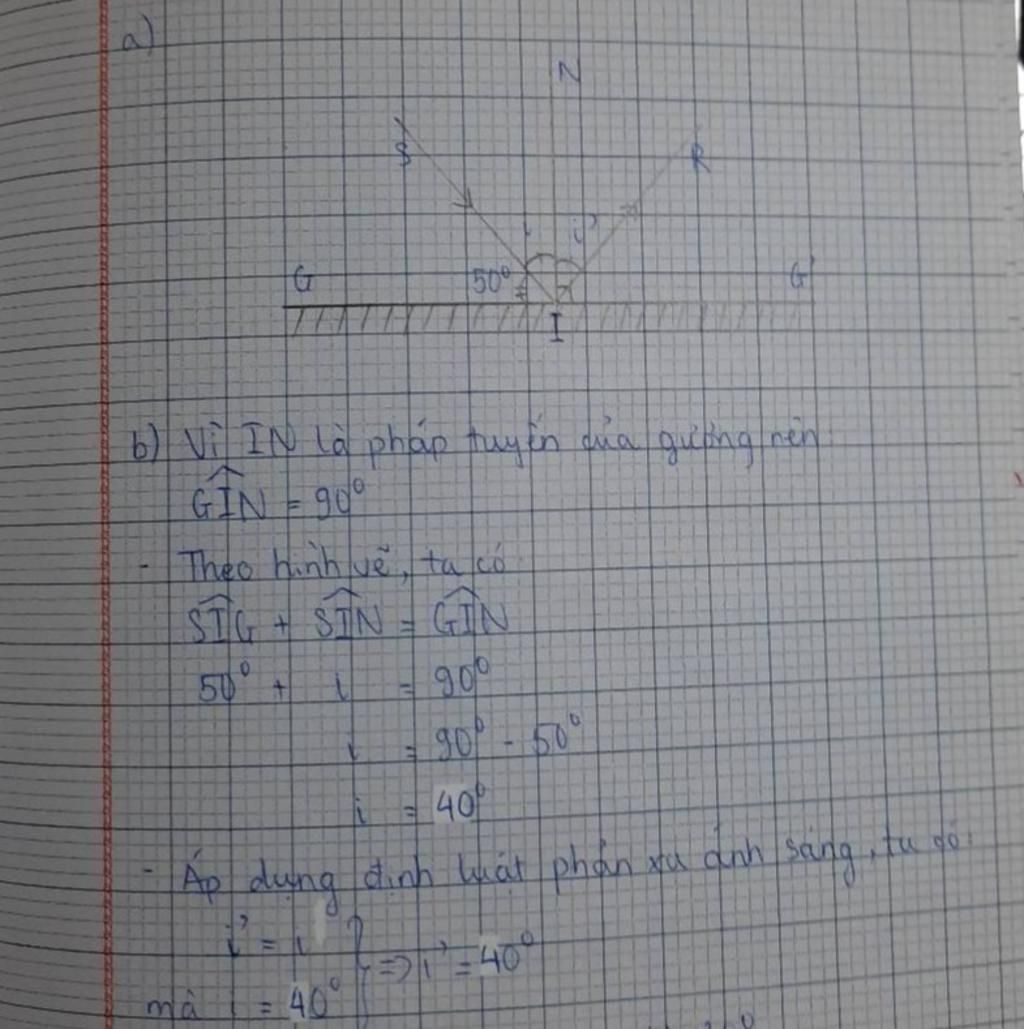 a)
N
S
R
i i'
G 50° G'
I
b) Vì IN là pháp tuyến của gương nên
GIN = 90°
- Theo hình vẽ, ta có
SIG + SIN = GIN
50° + i = 90°
i = 90° - 50°
i = 40°
- Áp dụng định luật phản xạ ánh sáng, ta có:
i' = i } => i' = 40°
mà i = 40°